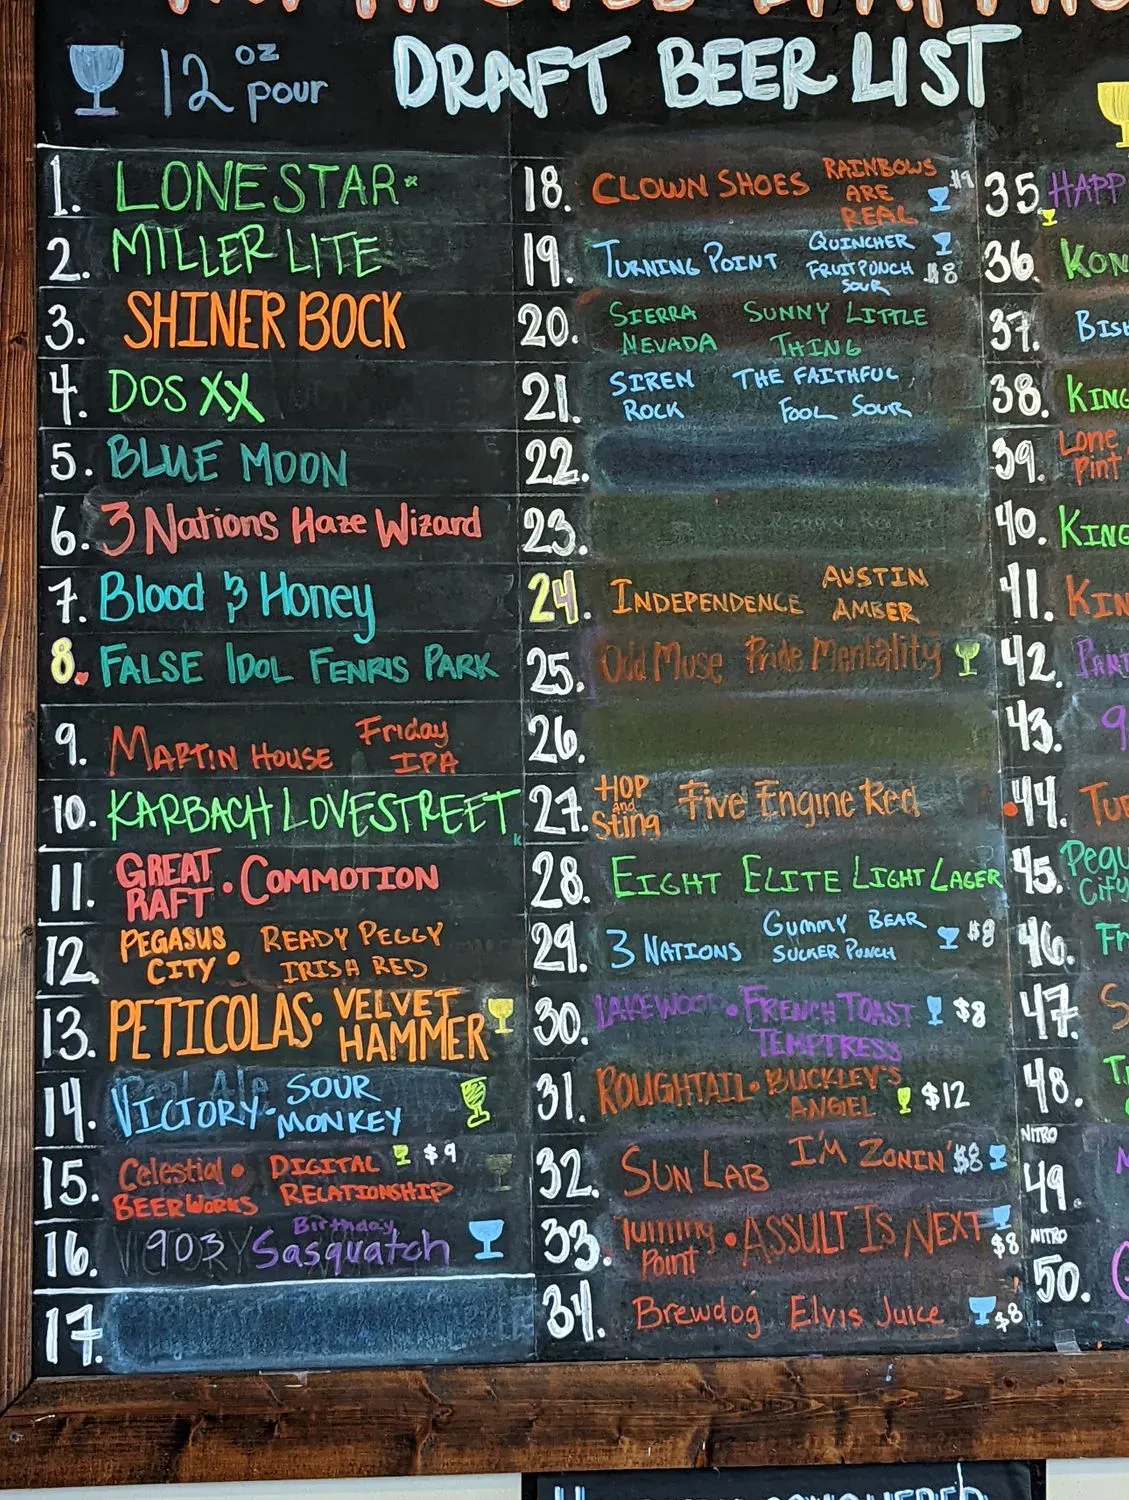 DRAFT BEER LIST
12 oz pour
1. LONESTAR
2. MILLER LITE
3. SHINER BOCK
4. DOS XX
5. BLUE MOON
6. 3 Nations Haze Wizard
7. Blood & Honey
8. FALSE IDOL FENRIS PARK
9. MARTIN HOUSE Friday IPA
10. KARBACH LOVESTREET
11. GREAT RAFT • COMMOTION
12. PEGASUS CITY • READY PEGGY IRISH RED
13. PETICOLAS • VELVET HAMMER
14. VICTORY • SOUR MONKEY
15. Celestial • BEERWORKS DIGITAL RELATIONSHIP $9
16. 903 Birthday Sasquatch
17.
18. CLOWN SHOES RAINBOWS ARE REAL $9
19. TURNING POINT QUINCHER FRUITPUNCH SOUR $8
20. SIERRA NEVADA SUNNY LITTLE THING
21. SIREN ROCK THE FAITHFUL FOOL SOUR
22.
23.
24. INDEPENDENCE AUSTIN AMBER
25. Odd Muse Pride Mentality
26.
27. HOP and Sting Five Engine Red
28. EIGHT ELITE LIGHT LAGER
29. 3 NATIONS GUMMY BEAR SUCKER PUNCH $8
30. LAKEWOOD • FRENCH TOAST TEMPTRESS $8
31. ROUGHTAIL • BUCKLEY'S ANGEL $12
32. SUN LAB I'M ZONIN' $8
33. Turning Point • ASSULT IS NEXT $8
34. Brewdog Elvis Juice $8
35 HAPP
36. KON
37. BISH
38. KING
39. Lone Pint
40. KING
41. KIN
42. PANT
43. 9
44. TU
45. Pegu City
46. Fr
47.
48. T
NITRO
49.
NITRO
50.